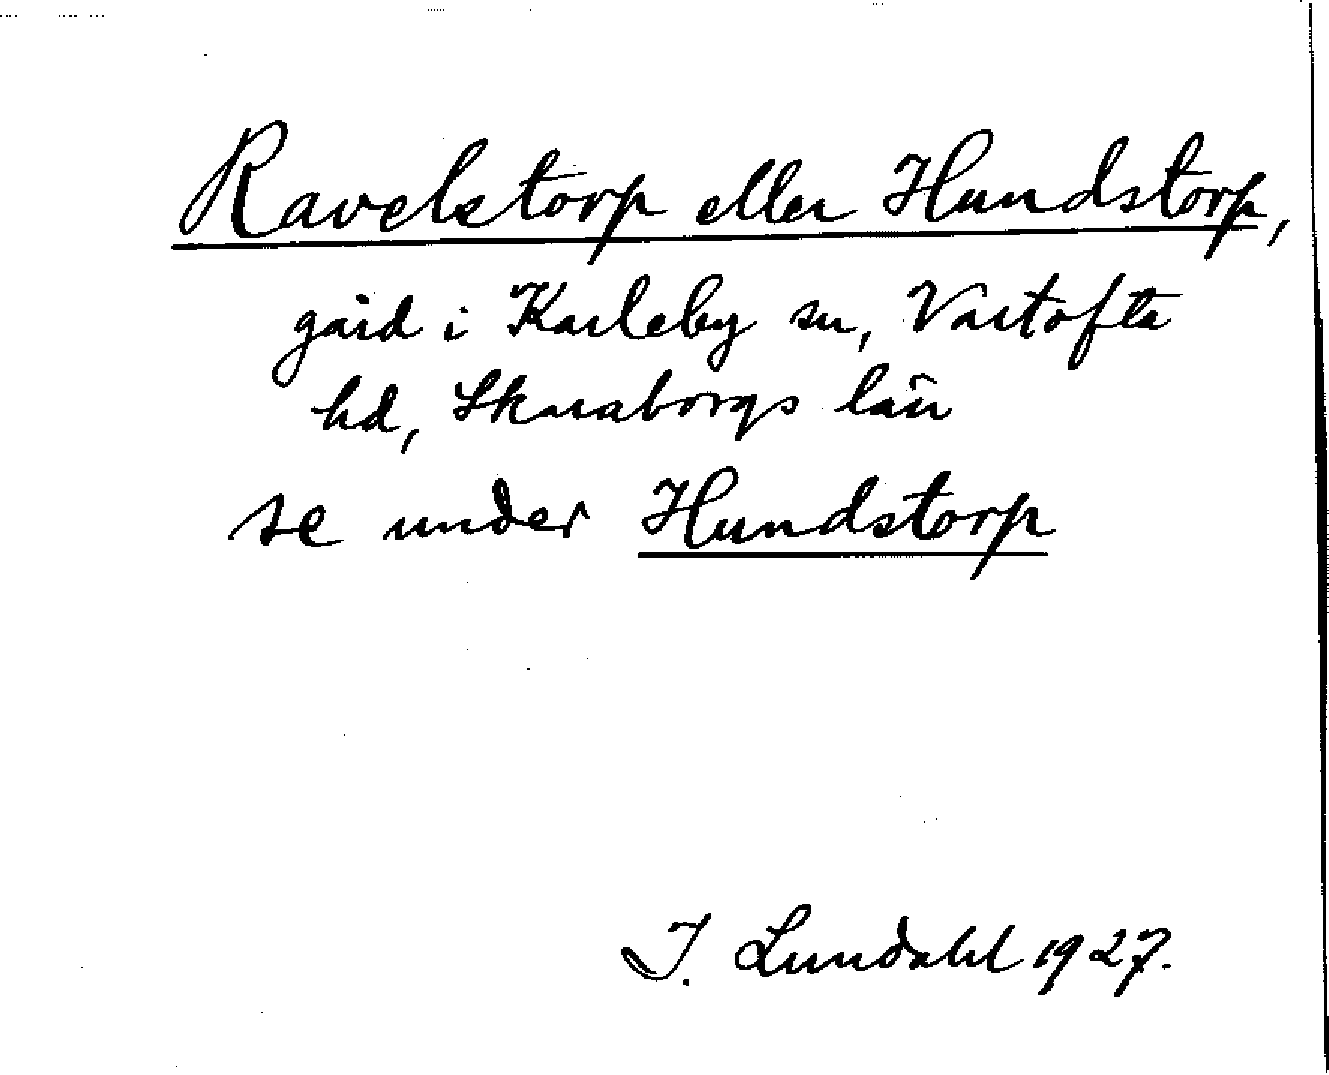 Ravelstorp eller Hundstorp,
gård i Karleby sn, Vartofta
hd, Skaraborgs län
se under Hundstorp
I. Lundahl 1927.